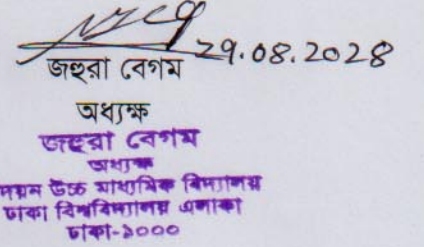 ২৭.০৪.২০২৪
জহুরা বেগম
অধ্যক্ষ
জহুরা বেগম
অধ্যক্ষ
দয়ন উচ্চ মাধ্যমিক বিদ্যালয়
ঢাকা বিশ্ববিদ্যালয় এলাকা
ঢাকা-১০০০